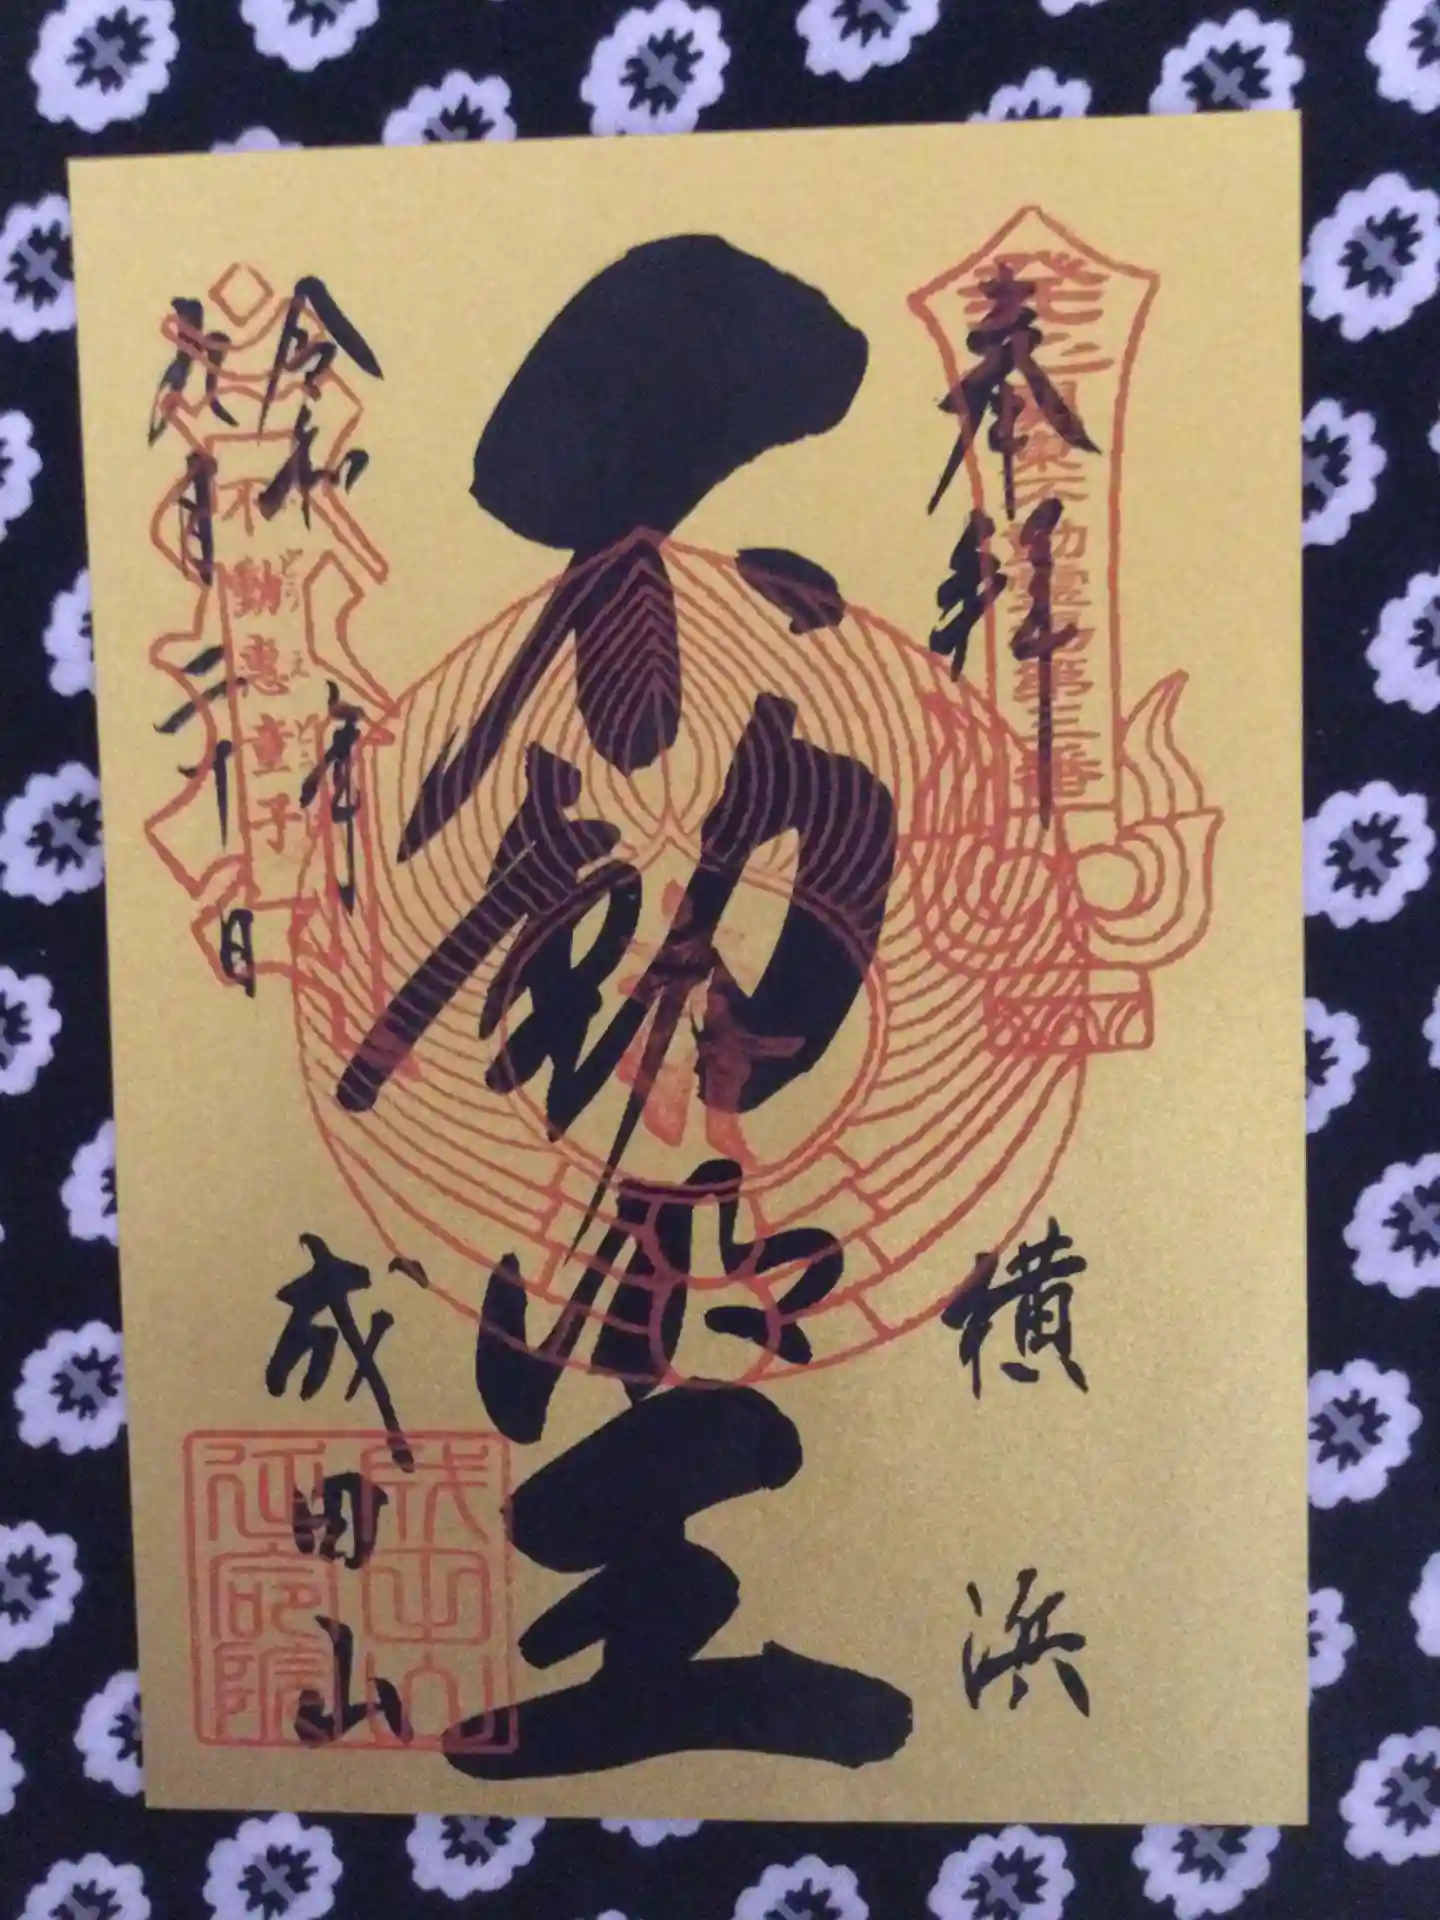 奉拝
発心 関東不動霊場第三番
横浜
不動明王
令和 年
九月二十日
不動惠童子
どう え どう
成田山
成田山
延命院